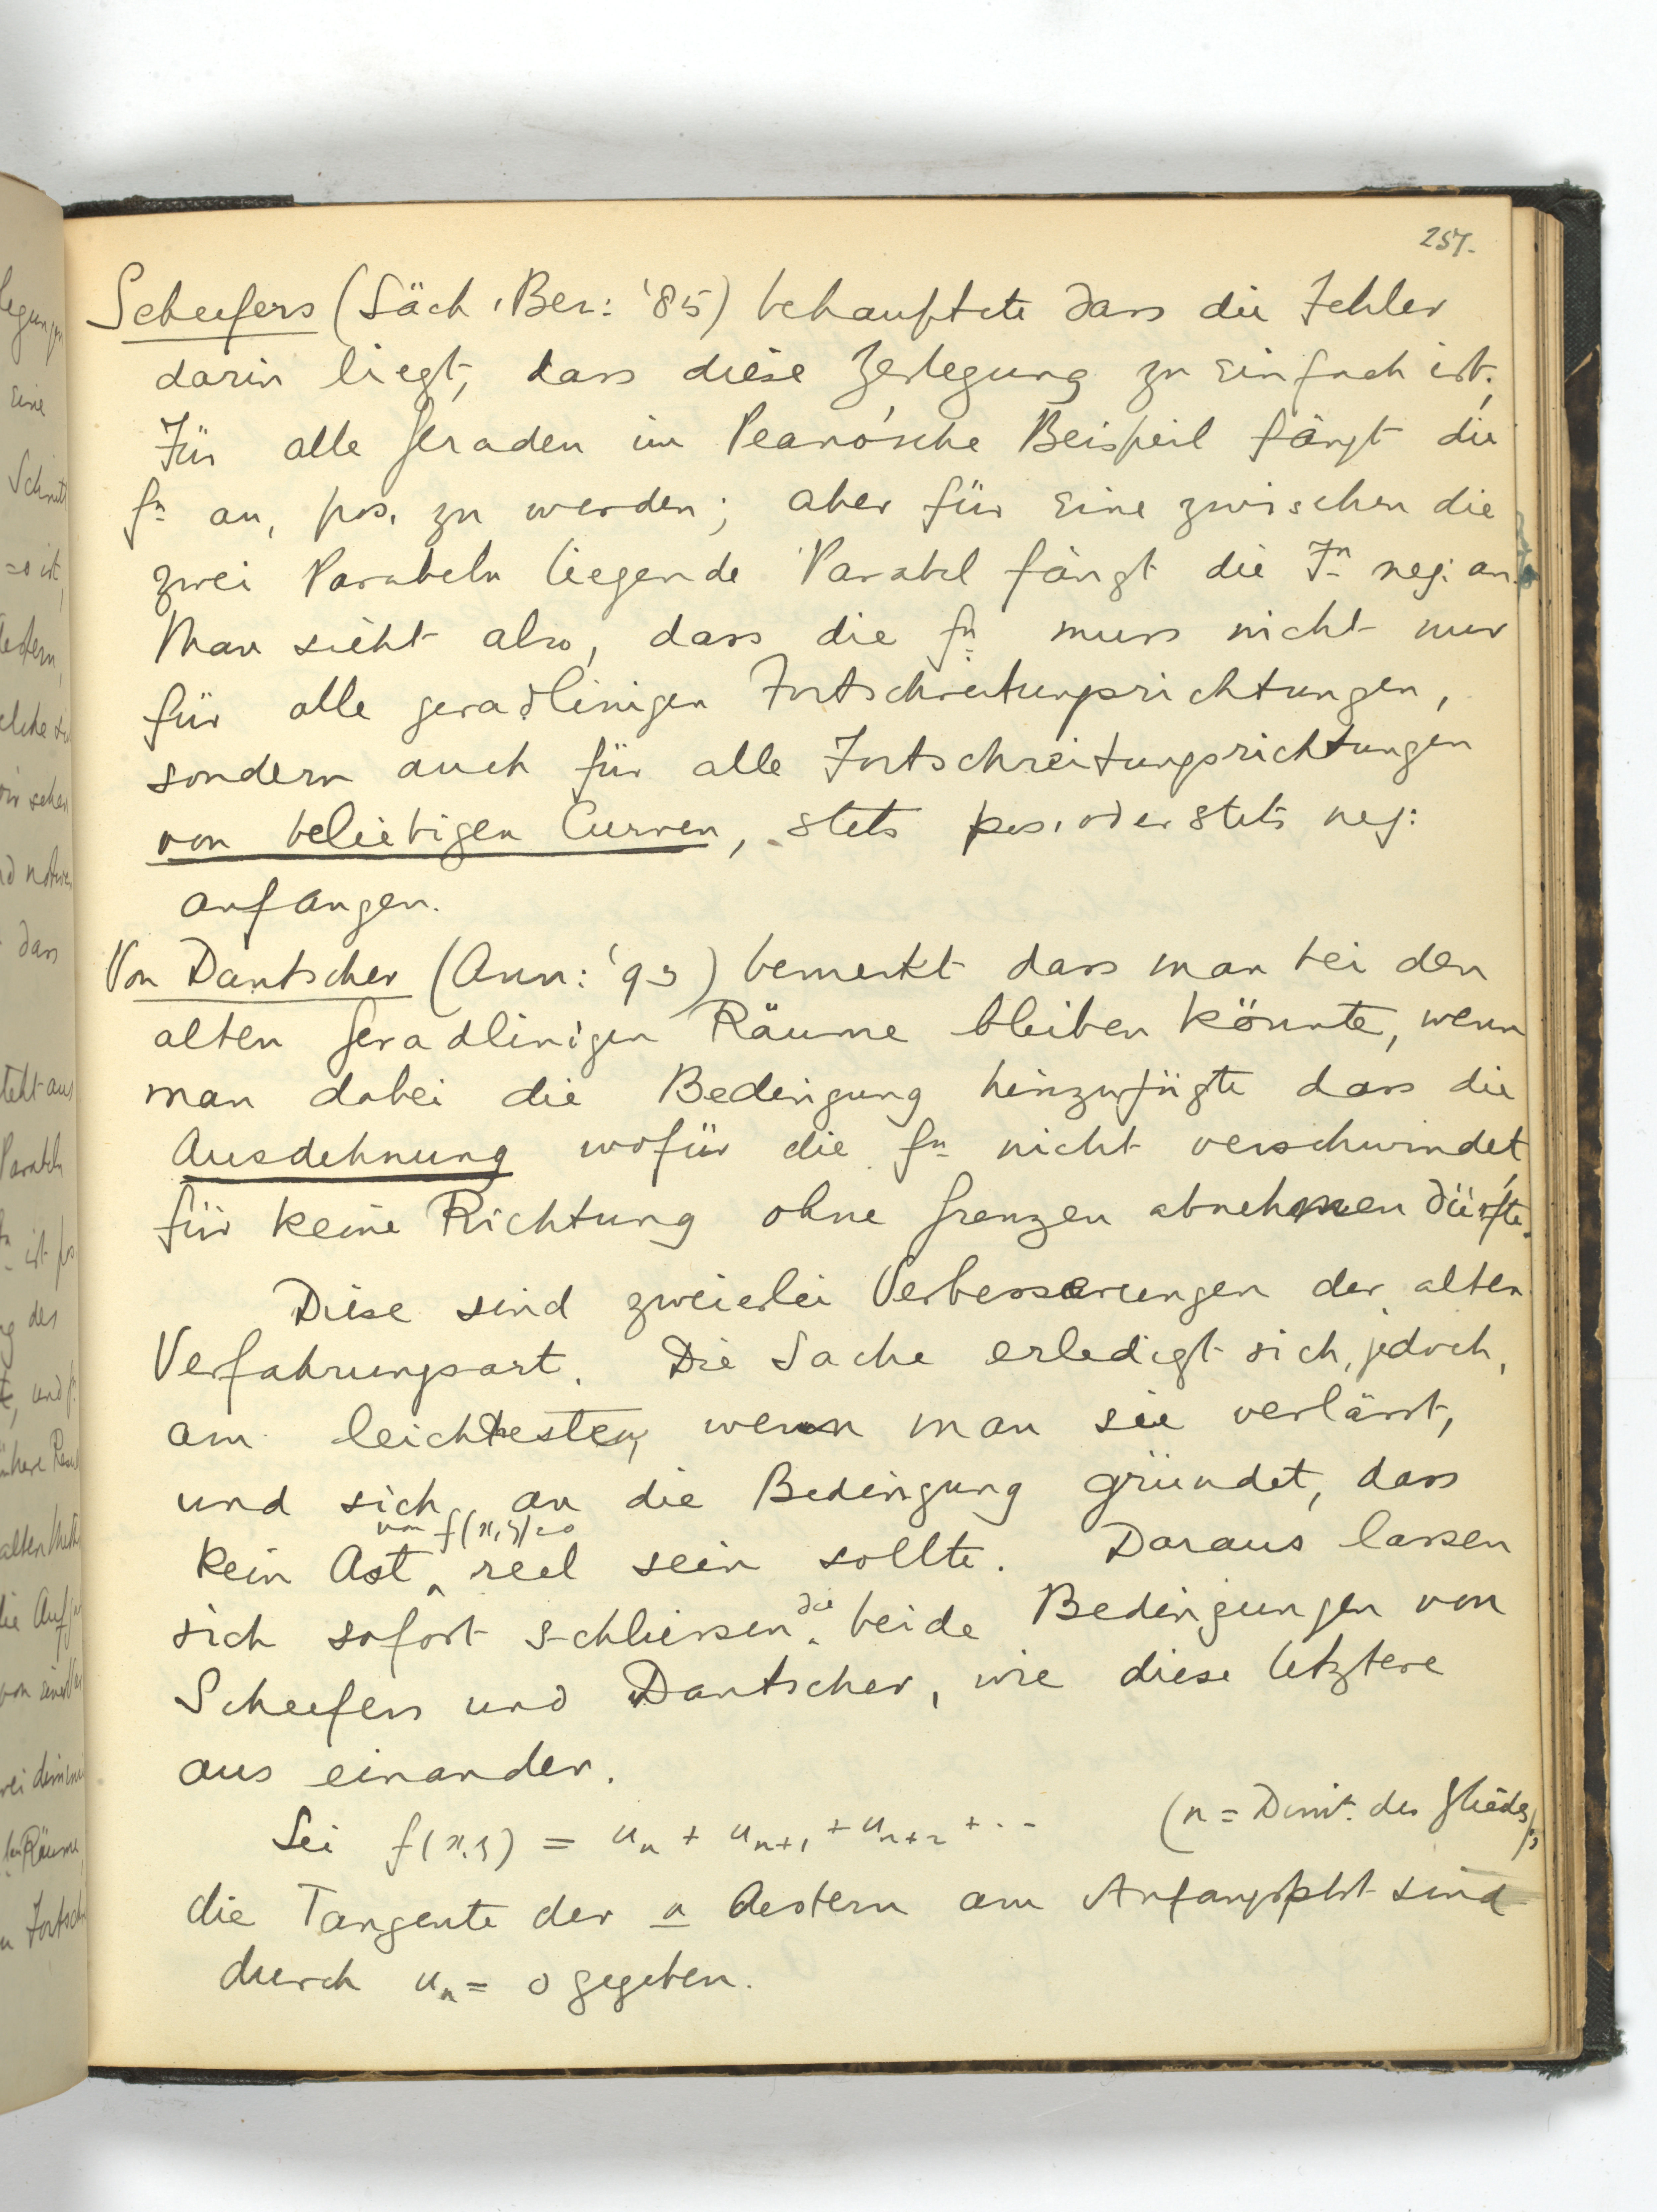 257.
Scheefers (Säch. Ber: '85) behauptete dass die Fehler
darin liegt, dass diese Zerlegung zu einfach ist;
Für alle Geraden im Peano'sche Beispeil fängt die
fn an, pos. zu werden; aber für eine zwischen die
zwei Parabeln liegende Parabel fängt die Fn neg: an.
Man sieht also, dass die fn muss nicht nur
für alle geradlinigen Fortschreitungsrichtungen,
sondern auch für alle Fortschreitungsrichtungen
von beliebigen Curven, stets pos. oder stets neg:
anfangen.
Von Dantscher (Ann: '93) bemerkt dass man bei den
alten geradlinigen Räume bleiben könnte, wenn
man dabei die Bedingung hinzufügte dass die
Ausdehnung wofür die fn nicht verschwindet,
für keine Richtung ohne Grenzen abnehmen dürfte.
Diese sind zweierlei Verbesserungen der alten
Verfahrungsart. Die Sache erledigt sich, jedoch,
am leichtesten, wenn man sie verlässt,
und sich an die Bedingung gründet, dass
kein Ast von f(x,y)=0 reel sein sollte. Daraus lassen
sich sofort schliessen die beide Bedingungen von
Scheefers und Dantscher, wie diese letztere
aus einander.
Sei f(x,y) = un + un+1 + un+2 + ... (n = Dimt. des Gliedes);
die Tangente der n Aestern am Anfangspkt sind
durch un = 0 gegeben.